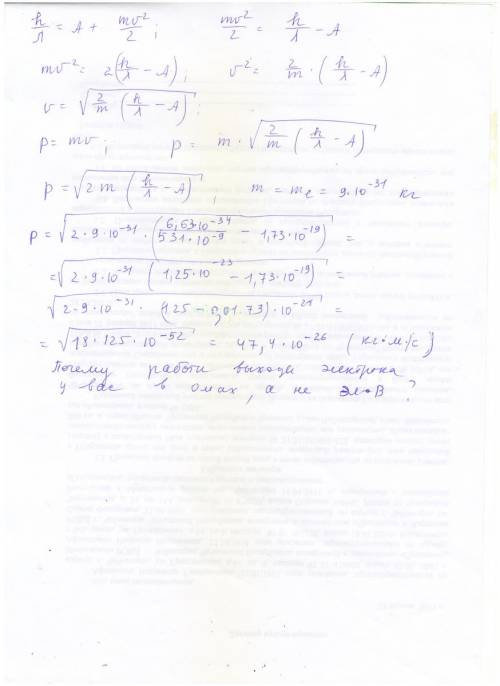 h/λ = A + mv²/2 ; mv²/2 = h/λ − A
mv² = 2(h/λ − A) ; v² = 2/m · (h/λ − A)
v = √(2/m (h/λ − A)) ;
p = mv ; p = m · √(2/m (h/λ − A))
p = √(2m (h/λ − A)) , m = me = 9·10⁻³¹ кг
p = √(2·9·10⁻³¹ · (6,63·10⁻³⁴/531·10⁻⁹ − 1,73·10⁻¹⁹)) =
= √(2·9·10⁻³¹ (1,25·10⁻²³ − 1,73·10⁻¹⁹)) =
√(2·9·10⁻³¹ · (125 − 0,01.73)·10⁻²¹ =
= √(18·125·10⁻⁵²) = 47,4·10⁻²⁶ (кг·м/с)
Почему работы выхода электрона
у вас в омах, а не эл·В ?